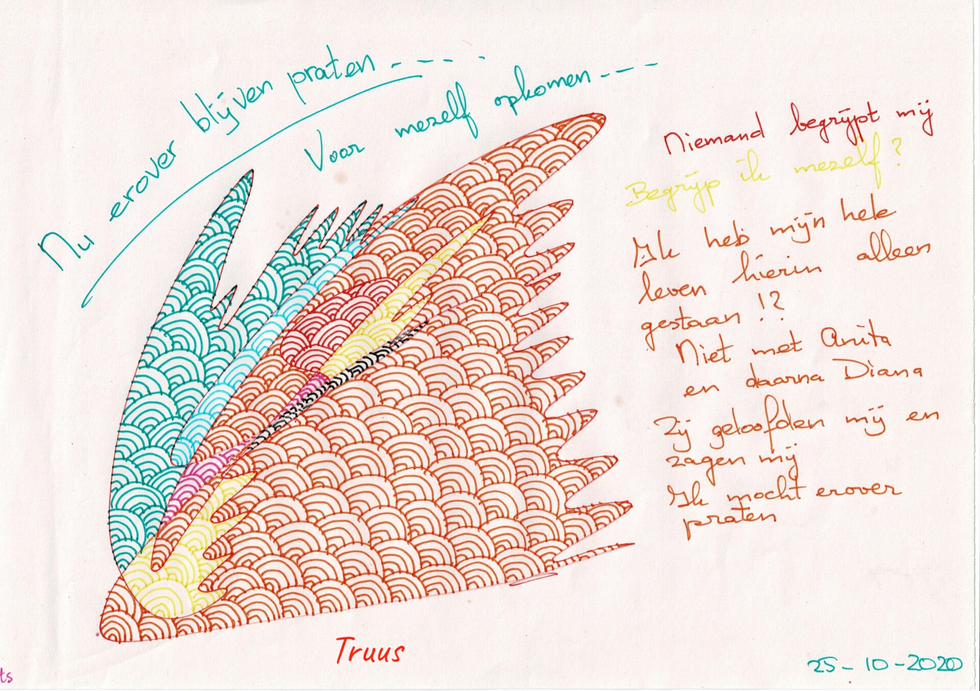 Nu erover blijven praten - - - -
Voor mezelf opkomen - - -
Niemand begrijpt mij
Begrijp ik mezelf?
Ik heb mijn hele
leven hierin alleen
gestaan !?
Niet met Anita
en daarna Diana
Zij geloofden mij en
zagen mij
Ik mocht erover
praten
Truus
25-10-2020
ts